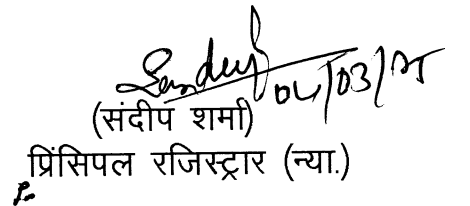 Sandeep 04/03/25
(संदीप शर्मा)
प्रिंसिपल रजिस्ट्रार (न्या.)